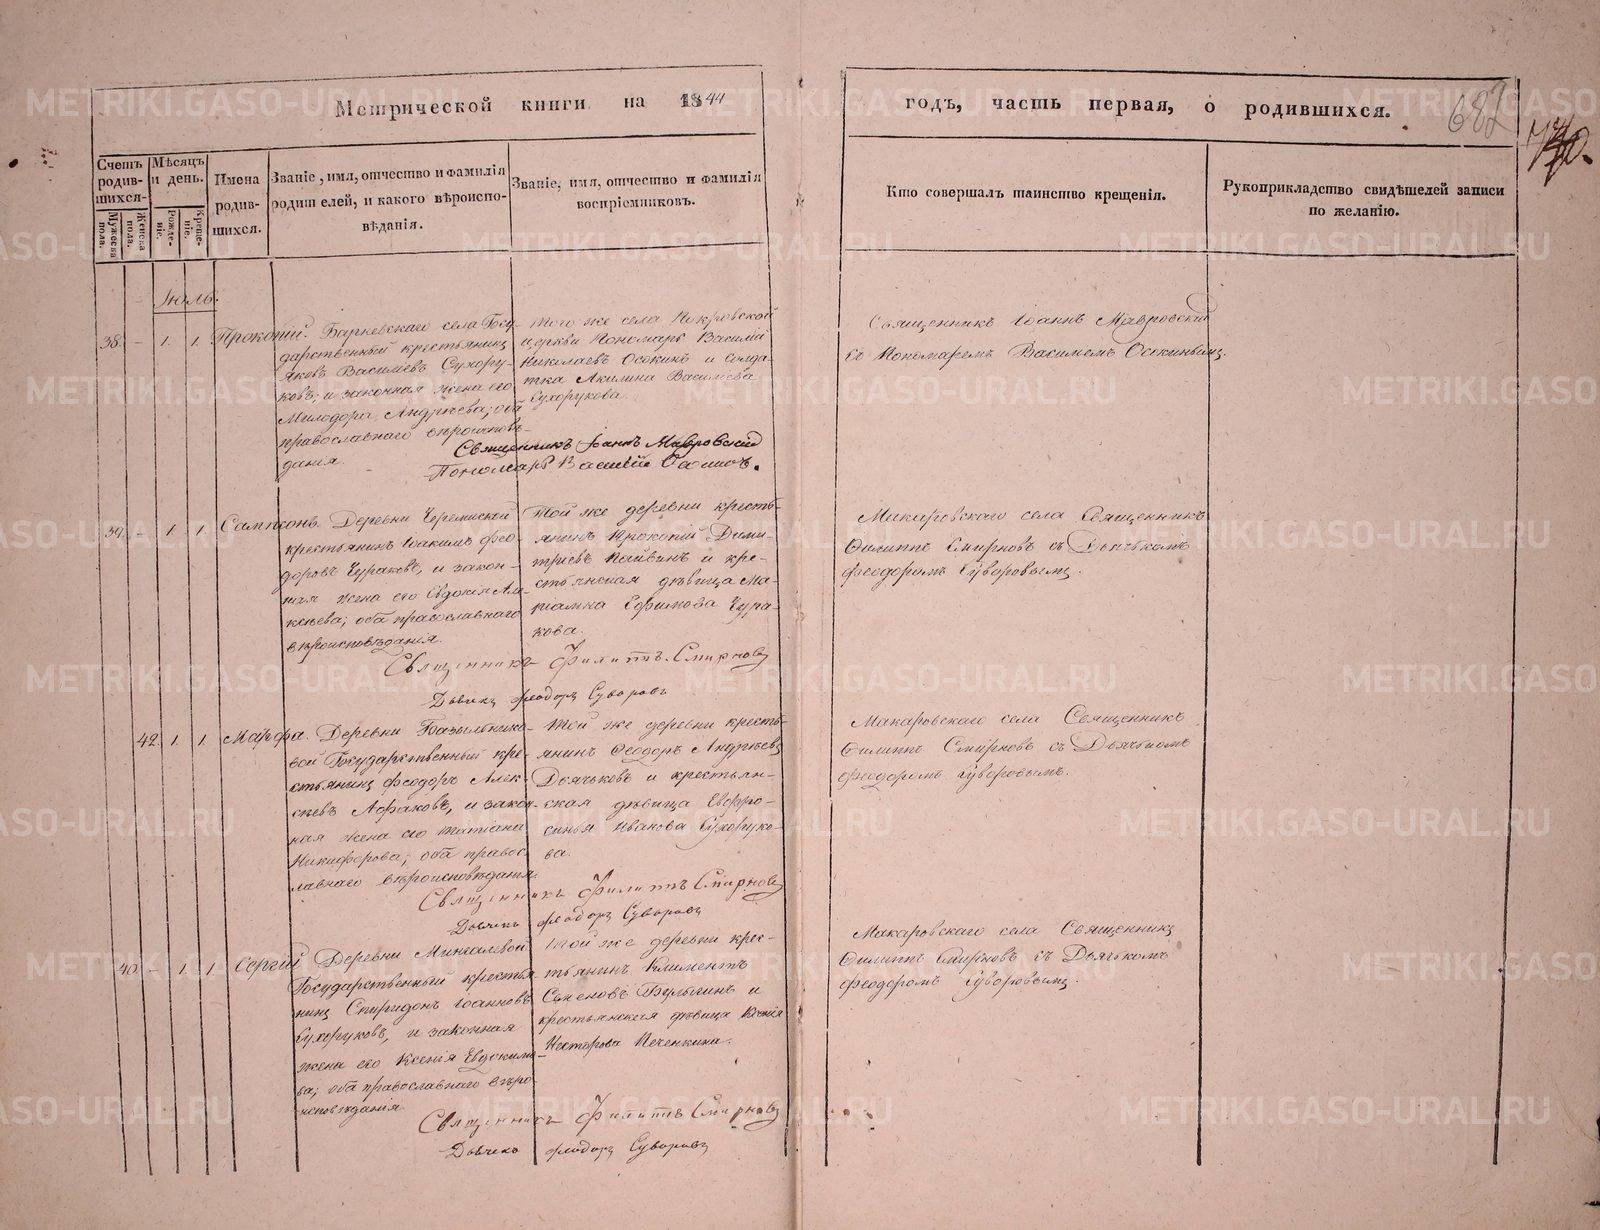 Метрической книги на 1844
годъ, часть первая, о родившихся.
682
Счетъ родив-шихся.
Мужеска пола.
Женска пола.
Мѣсяцъ и день.
Рожде-ніе.
Креще-ніе.
Имена родив-шихся.
Званіе, имя, отчество и фамилія родителей, и какого вѣроиспо-вѣданія.
Званіе, имя, отчество и фамилія воспріемниковъ.
Кто совершалъ таинство крещенія.
Рукоприкладство свидѣтелей записи по желанію.
Іюль.
38. - 1. 1. Прокопій.
Барневскаго села Госу-
дарственный крестьянинъ
Яковъ Васильевъ Сухору-
ковъ, и законная жена его
Милодора Андреева; оба
православнаго вѣроисповѣ-
данія.
того же села Покровской
церкви Пономарь Василій
Николаевъ Осокинъ и солда-
тка Акилина Васильева
Сухорукова.
Священникъ Іоаннъ Мавровскій
съ Пономаремъ Васильемъ Осокинымъ.
Священникъ Іоаннъ Мавровскій
Пономарь Василій Осокинъ.
39. - 1. 1. Сампсонъ.
Деревни Черемиской
крестьянинъ Іоакимъ Фео-
доровъ Чураковъ, и закон-
ная жена его Евдокія Але-
ксѣева; оба православнаго
вѣроисповѣданія.
Той же деревни кресть-
янинъ Прокопій Дими-
тріевъ Пайвинъ и кре-
стьянская дѣвица Ма-
ріамна Ефимова Чура-
кова.
Макаровскаго села Священникъ
Филиппъ Смирновъ съ Дьячкомъ
Феодоромъ Суворовымъ.
Священникъ Филиппъ Смирновъ
Дьячекъ Феодоръ Суворовъ
42. 1. 1. Марфа.
Деревни
вой Государственный кре-
стьянинъ Феодоръ Алек-
сѣевъ и закон-
ная жена его Татіана
Никифорова; оба правос-
лавнаго вѣроисповѣданія.
Той же деревни кресть-
янинъ Феодоръ Андреевъ
Дьячковъ и крестьян-
ская дѣвица Евфро-
синья Иванова Сухоруко-
ва.
Макаровскаго села Священникъ
Филиппъ Смирновъ съ Дьячкомъ
Феодоромъ Суворовымъ.
Священникъ Филиппъ Смирновъ
Дьячекъ Феодоръ Суворовъ
40. - 1. 1. Сергій
Деревни Мингалевой
Государственный крестья-
нинъ Спиридонъ Іоанновъ
Сухоруковъ, и законная
жена его Ксенія Евдокимо-
ва; оба православнаго вѣро-
исповѣданія.
той же деревни крес-
тьянинъ Климентъ
Семеновъ Булыгинъ и
крестьянская дѣвица Ксенія
Несторова Печенкина.
Макаровскаго села Священникъ
Филиппъ Смирновъ съ Дьячкомъ
Феодоромъ Суворовымъ.
Священникъ Филиппъ Смирновъ
Дьячекъ Феодоръ Суворовъ
METRIKI.GASO-URAL.RU